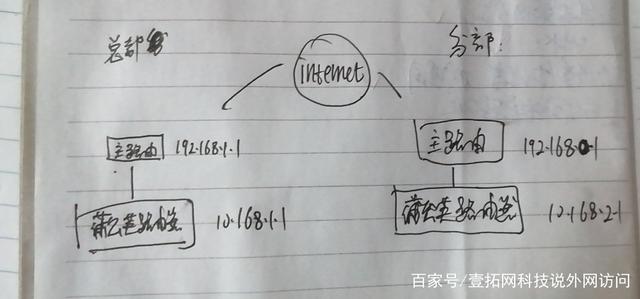 总部
分部:
internet
主路由 192.168.1.1
主路由 192.168.0.1
蒲公英路由器 10.168.1.1
蒲公英路由器 10.168.2.1
百家号/壹拓网科技说外网访问